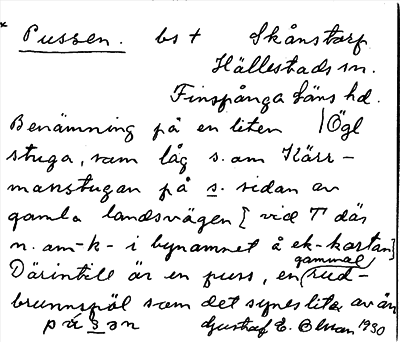 * Pussen. bs † Skånstorp
Hällestads sn.
Finspånga läns hd.
Benämning på en liten | Ögl
stuga, som låg s. om Kärr-
manstugan på s. sidan av
gamla landsvägen [vid T där
n. am-k- i bynamnet å ek-kartan]
Därintill är en puss, en gammal rud-
brunnspöl som det synes lite av än
Gustaf E. Olsson 1930